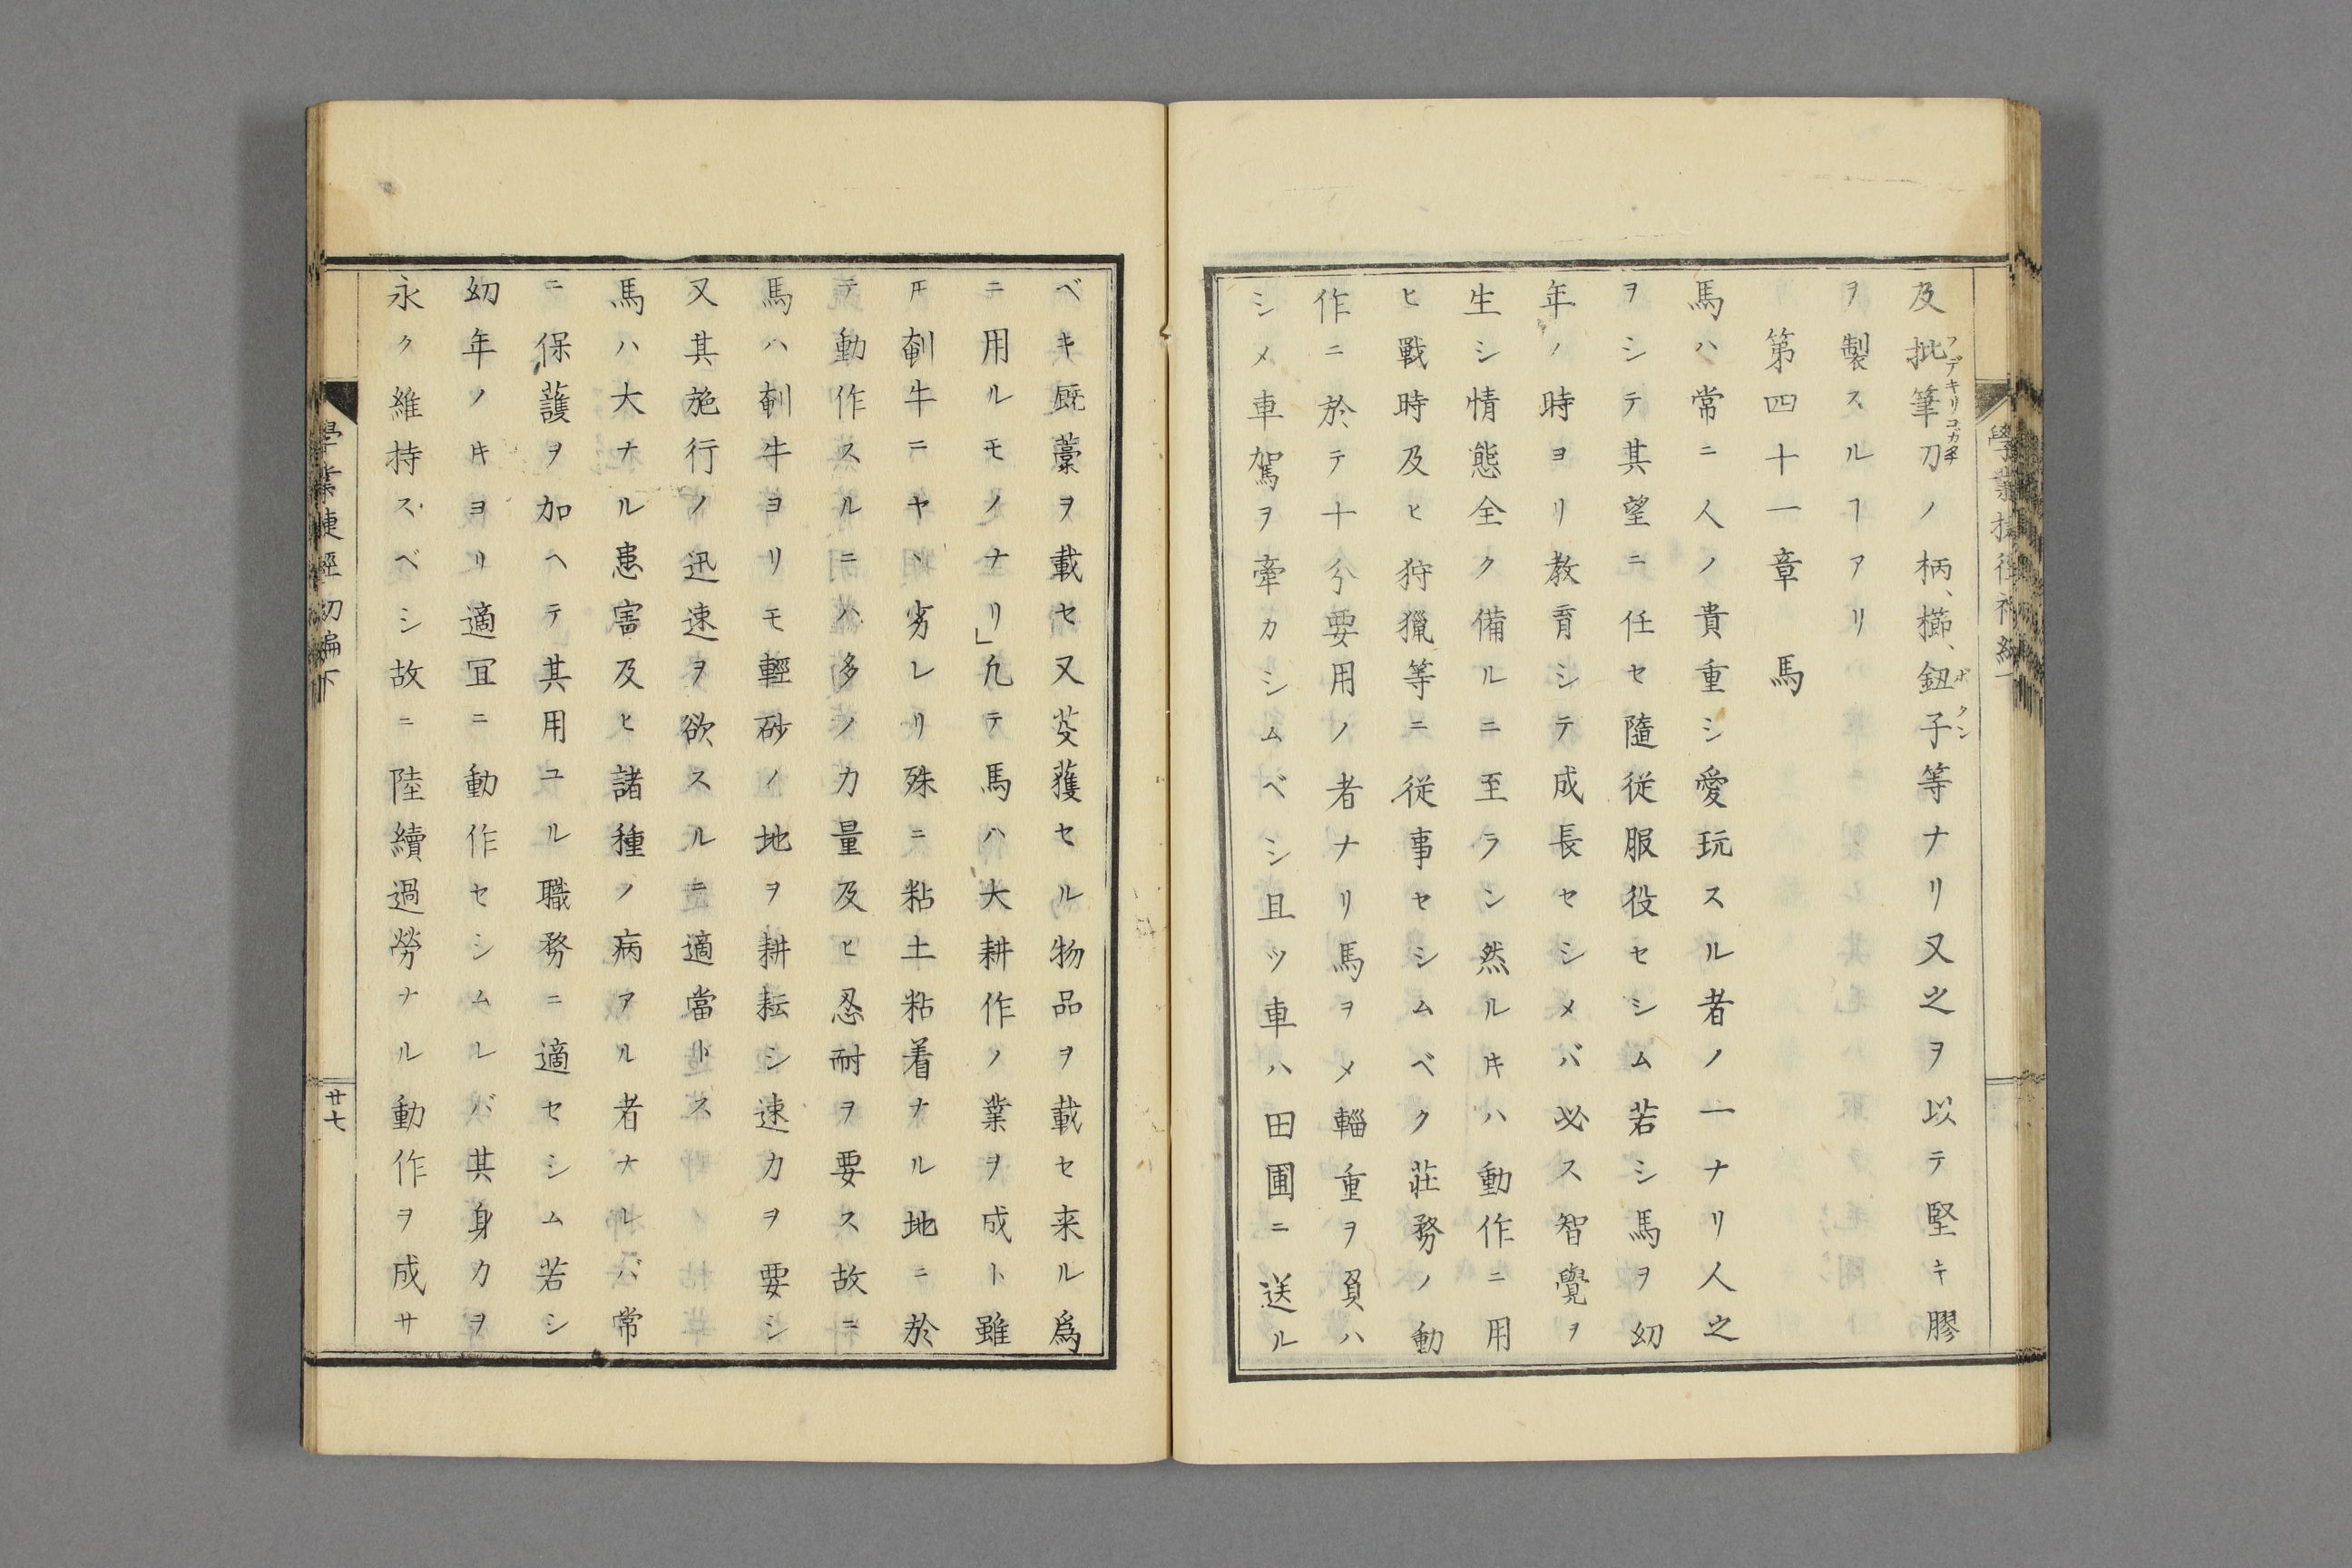 及批筆刀ノ柄、櫛、鈕子等ナリ又之ヲ以テ堅キ膠
フデキリコガタナ
ボタン
ヲ製スルヿアリ
第四十一章 馬
馬ハ常ニ人ノ貴重シ愛玩スル者ノ一ナリ人之
ヲシテ其望ニ任セ隨従服役セシム若シ馬ヲ幼
年ノ時ヨリ教育シテ成長セシメバ必ス智覺ヲ
生シ情態全ク備ルニ至ラン然ルキハ動作ニ用
ヒ戰時及ヒ狩獵等ニ従事セシムベク莊務ノ動
作ニ於テ十分要用ノ者ナリ馬ヲメ輜重ヲ負ハ
シメ車駕ヲ牽カシムベシ且ツ車ハ田圃ニ送ル
ベキ厩藁ヲ載セ又芟獲セル物品ヲ載セ来ル爲
ニ用ルモノナリ」凢テ馬ハ大耕作ノ業ヲ成ト雖
𪜈剦牛ニヤヽ劣レリ殊ニ粘土粘着ナル地ニ於
テ動作スルニハ多ノ力量及ヒ忍耐ヲ要ス故ニ
馬ハ剦牛ヨリモ輕砂ノ地ヲ耕耘シ速力ヲ要シ
又其施行ノ迅速ヲ欲スルニ適當トス
馬ハ大ナル患害及ヒ諸種ノ病アル者ナレバ常
ニ保護ヲ加ヘテ其用ユル職務ニ適セシム若シ
幼年ノキヨリ適冝ニ動作セシムレバ其身力ヲ
永ク維持スベシ故ニ陸續過勞ナル動作ヲ成サ
學業捷徑 初編下
廿七